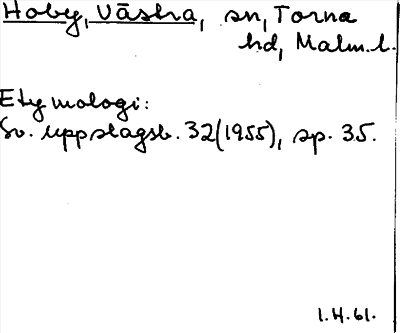 Hoby, Västra, sn, Torna
hd, Malm. l.
Etymologi:
Sv. uppslagsb. 32(1955), sp. 35.
1.H.61.